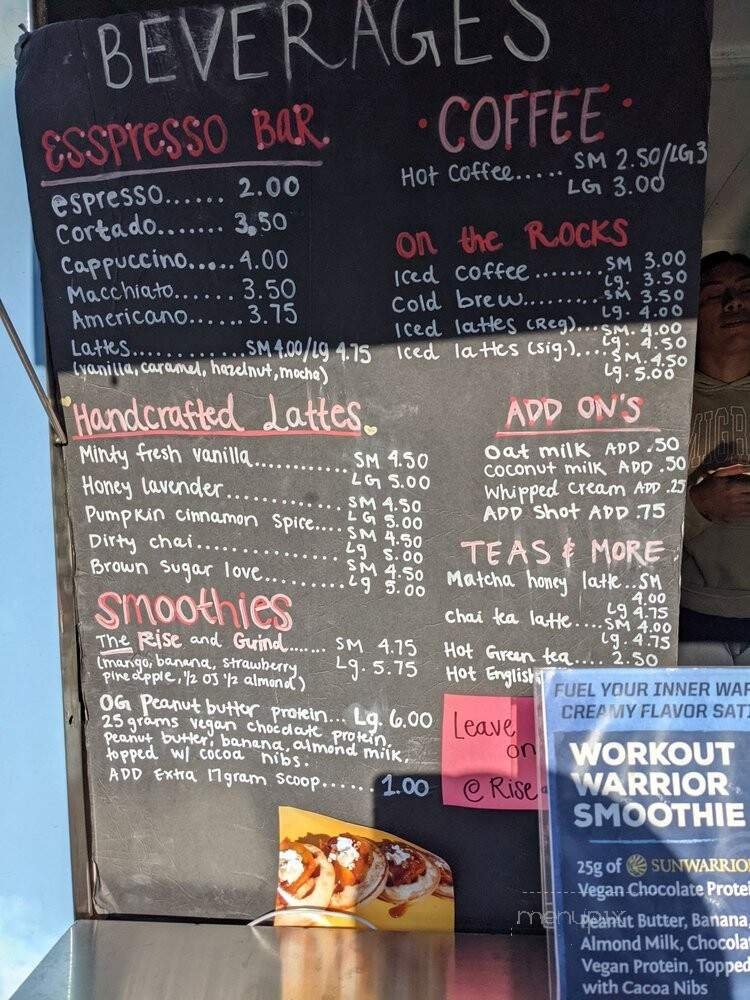 BEVERAGES
ESSPRESSO BAR
espresso...... 2.00
Cortado....... 3.50
Cappuccino..... 4.00
Macchiato...... 3.50
Americano...... 3.75
Lattes............SM 4.00/lg 4.75
(vanilla, caramel, hazelnut, mocha)
Handcrafted Lattes
Minty fresh vanilla............. SM 4.50
LG 5.00
Honey lavender................. SM 4.50
LG 5.00
Pumpkin cinnamon spice.... SM 4.50
Lg 5.00
Dirty chai.....................
Brown sugar love............ SM 4.50
Lg 5.00
Smoothies
The Rise and Grind...... SM 4.75
Lg. 5.75
(mango, banana, strawberry
pineapple, 1/2 OJ 1/2 almond)
OG Peanut butter protein... Lg. 6.00
25 grams vegan chocolate protein,
peanut butter, banana, almond milk,
topped w/ cocoa nibs.
ADD Extra 17gram scoop...... 1.00
• COFFEE •
Hot Coffee..... SM 2.50/LG 3
LG 3.00
On the ROCKS
Iced Coffee........ SM 3.00
Lg. 3.50
Cold brew......... SM 3.50
Lg. 4.00
Iced lattes (Reg)... SM. 4.00
Lg. 4.50
Iced lattes (sig.).... SM. 4.50
Lg. 5.00
ADD ON'S
Oat milk ADD .50
Coconut milk ADD .50
Whipped Cream ADD .25
ADD Shot ADD .75
TEAS & MORE
Matcha honey latte... SM
4.00
Lg 4.75
Chai tea latte.... SM 4.00
Lg. 4.75
Hot Green tea.... 2.50
Hot English
Leave
on
@ Rise
FUEL YOUR INNER WAR
CREAMY FLAVOR SATI
WORKOUT
WARRIOR
SMOOTHIE
25g of SUNWARRIO
Vegan Chocolate Protei
Peanut Butter, Banana,
Almond Milk, Chocola
Vegan Protein, Topped
with Cacao Nibs
menupix